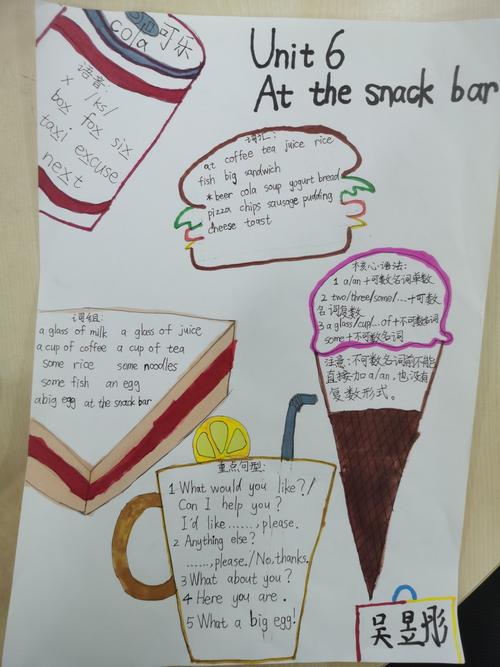 Unit 6
At the snack bar
可乐
cola
语音:
x /ks/
box fox six
taxi excuse
next
词汇:
at coffee tea juice rice
fish big sandwich
*beer cola soup yogurt bread
pizza chips sausage pudding
cheese toast
核心语法:
1 a/an+可数名词单数
2 two/three/some/...+可数
名词复数
3 a glass/cup/...of+不可数名词
some+不可数名词
注意:不可数名词前不能
直接加a/an,也没有
复数形式。
词组:
a glass of milk a glass of juice
a cup of coffee a cup of tea
some rice some noodles
some fish an egg
a big egg at the snack bar
重点句型:
1 What would you like?/
Can I help you?
I'd like ......, please.
2 Anything else?
......, please./No, thanks.
3 What about you?
4 Here you are.
5 What a big egg!
吴昱彤